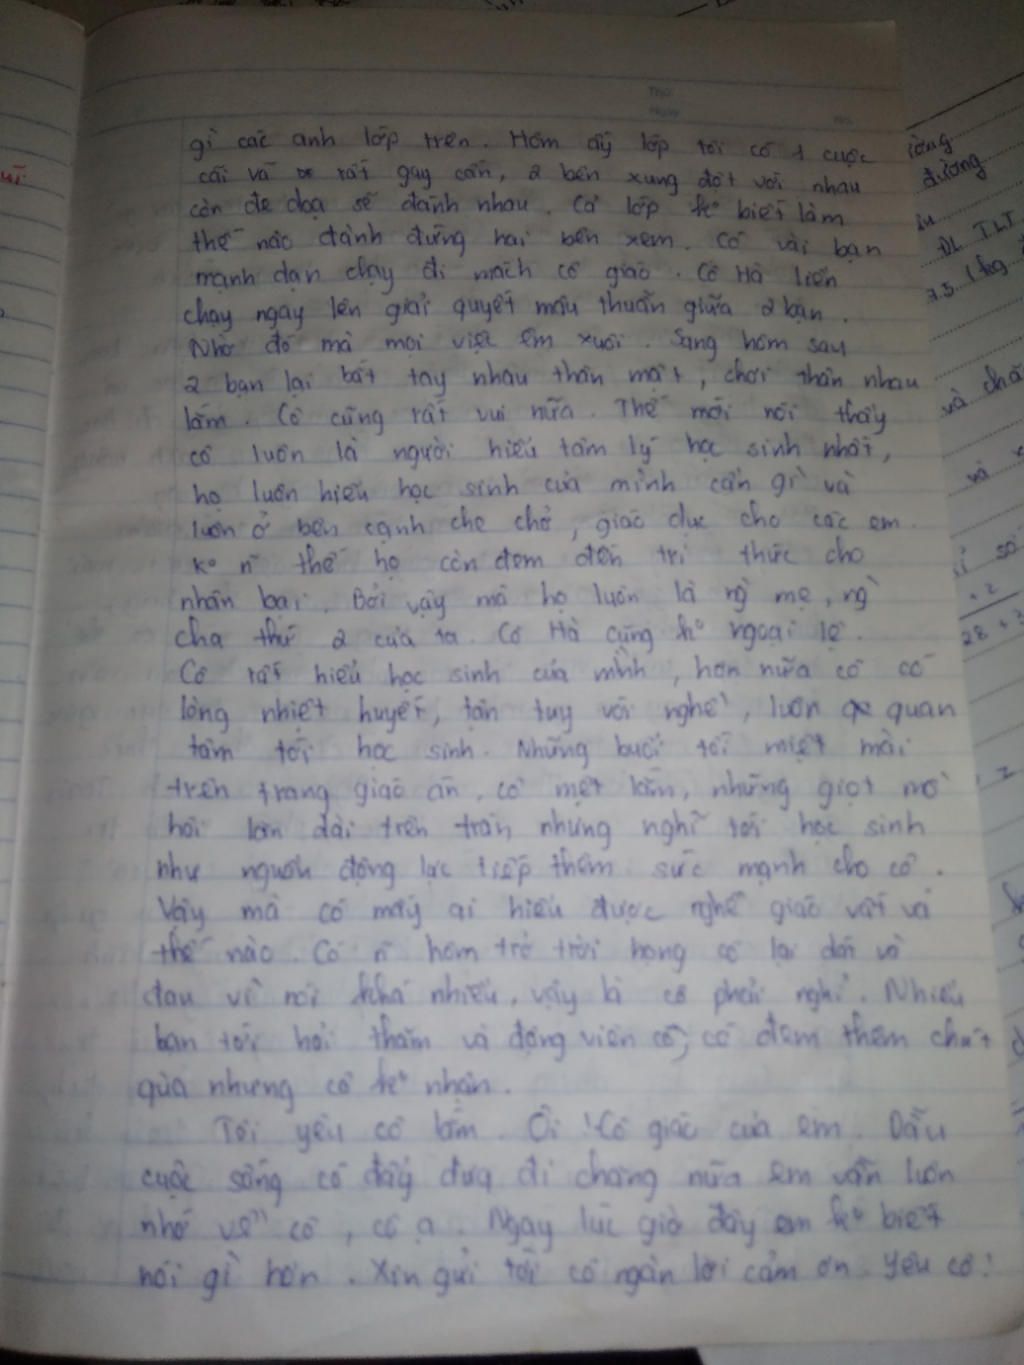 Thứ
Ngày
gì các anh lớp trên. Hôm ấy lớp tôi có 1 cuộc
cãi vã rất gay cấn, 2 bên xung đột với nhau
còn đe doạ sẽ đánh nhau. Cả lớp ko biết làm
thế nào đành đứng hai bên xem. Có vài bạn
mạnh dạn chạy đi mách cô giáo. Cô Hà liền
chạy ngay lên giải quyết mâu thuẫn giữa 2 bạn.
Nhờ đó mà mọi việc êm xuôi. Sáng hôm sau
2 bạn lại bắt tay nhau thân mật, chơi thân nhau
lắm. Cô cũng rất vui nữa. Thế mới nói thầy
cô luôn là người hiểu tâm lý học sinh nhất,
họ luôn hiểu học sinh của mình cần gì và
luôn ở bên cạnh che chở, giáo dục cho các em.
Ko n~ thế họ còn đem đến tri thức cho
nhân loại. Bởi vậy mà họ luôn là ng` mẹ, ng`
cha thứ 2 của ta. Cô Hà cũng ko ngoại lệ.
Cô rất hiểu học sinh của mình, hơn nữa cô có
lòng nhiệt huyết, tận tuỵ với nghề, luôn quan
tâm tới học sinh. Những buổi tối miệt mài
trên trang giáo án, cô mệt lắm, những giọt mồ
hôi lăn dài trên trán, nhưng nghĩ tới học sinh
như nguồn động lực tiếp thêm sức mạnh cho cô.
Vậy mà có mấy ai hiểu được nghề giáo vất vả
thế nào. Có n~ hôm trở trời họng cô lại rát và
đau vì nói khá nhiều, vậy là cô phải nghỉ. Nhiều
bạn tới hỏi thăm và động viên cô, có đem thêm chút
quà nhưng cô ko nhận.
Tôi yêu cô lắm. Ôi! Cô giáo của em. Dẫu
cuộc sống có đẩy đưa đi chăng nữa em vẫn luôn
nhớ về cô, cô ạ. Ngay lúc giờ đây em ko biết
nói gì hơn. Xin gửi tới cô ngàn lời cảm ơn. Yêu cô!
đường
ĐL TLT
và
28 + 3